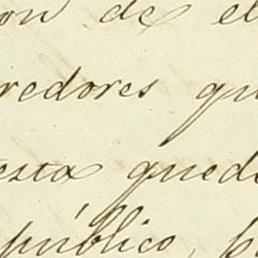 on de el
redores qu
esta qued
público, p